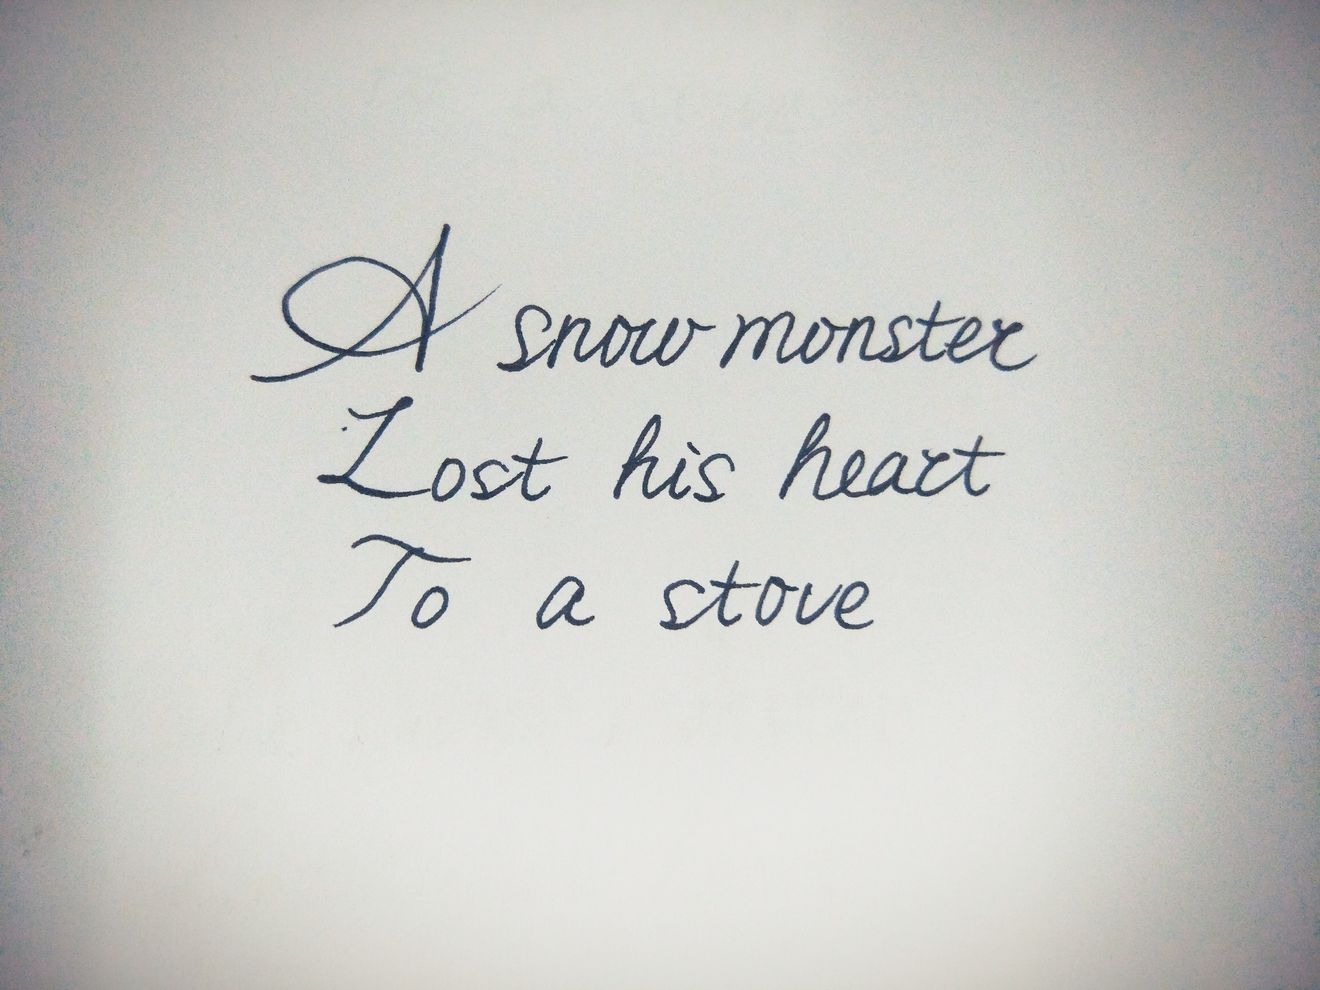 A snow monster
Lost his heart
To a stove